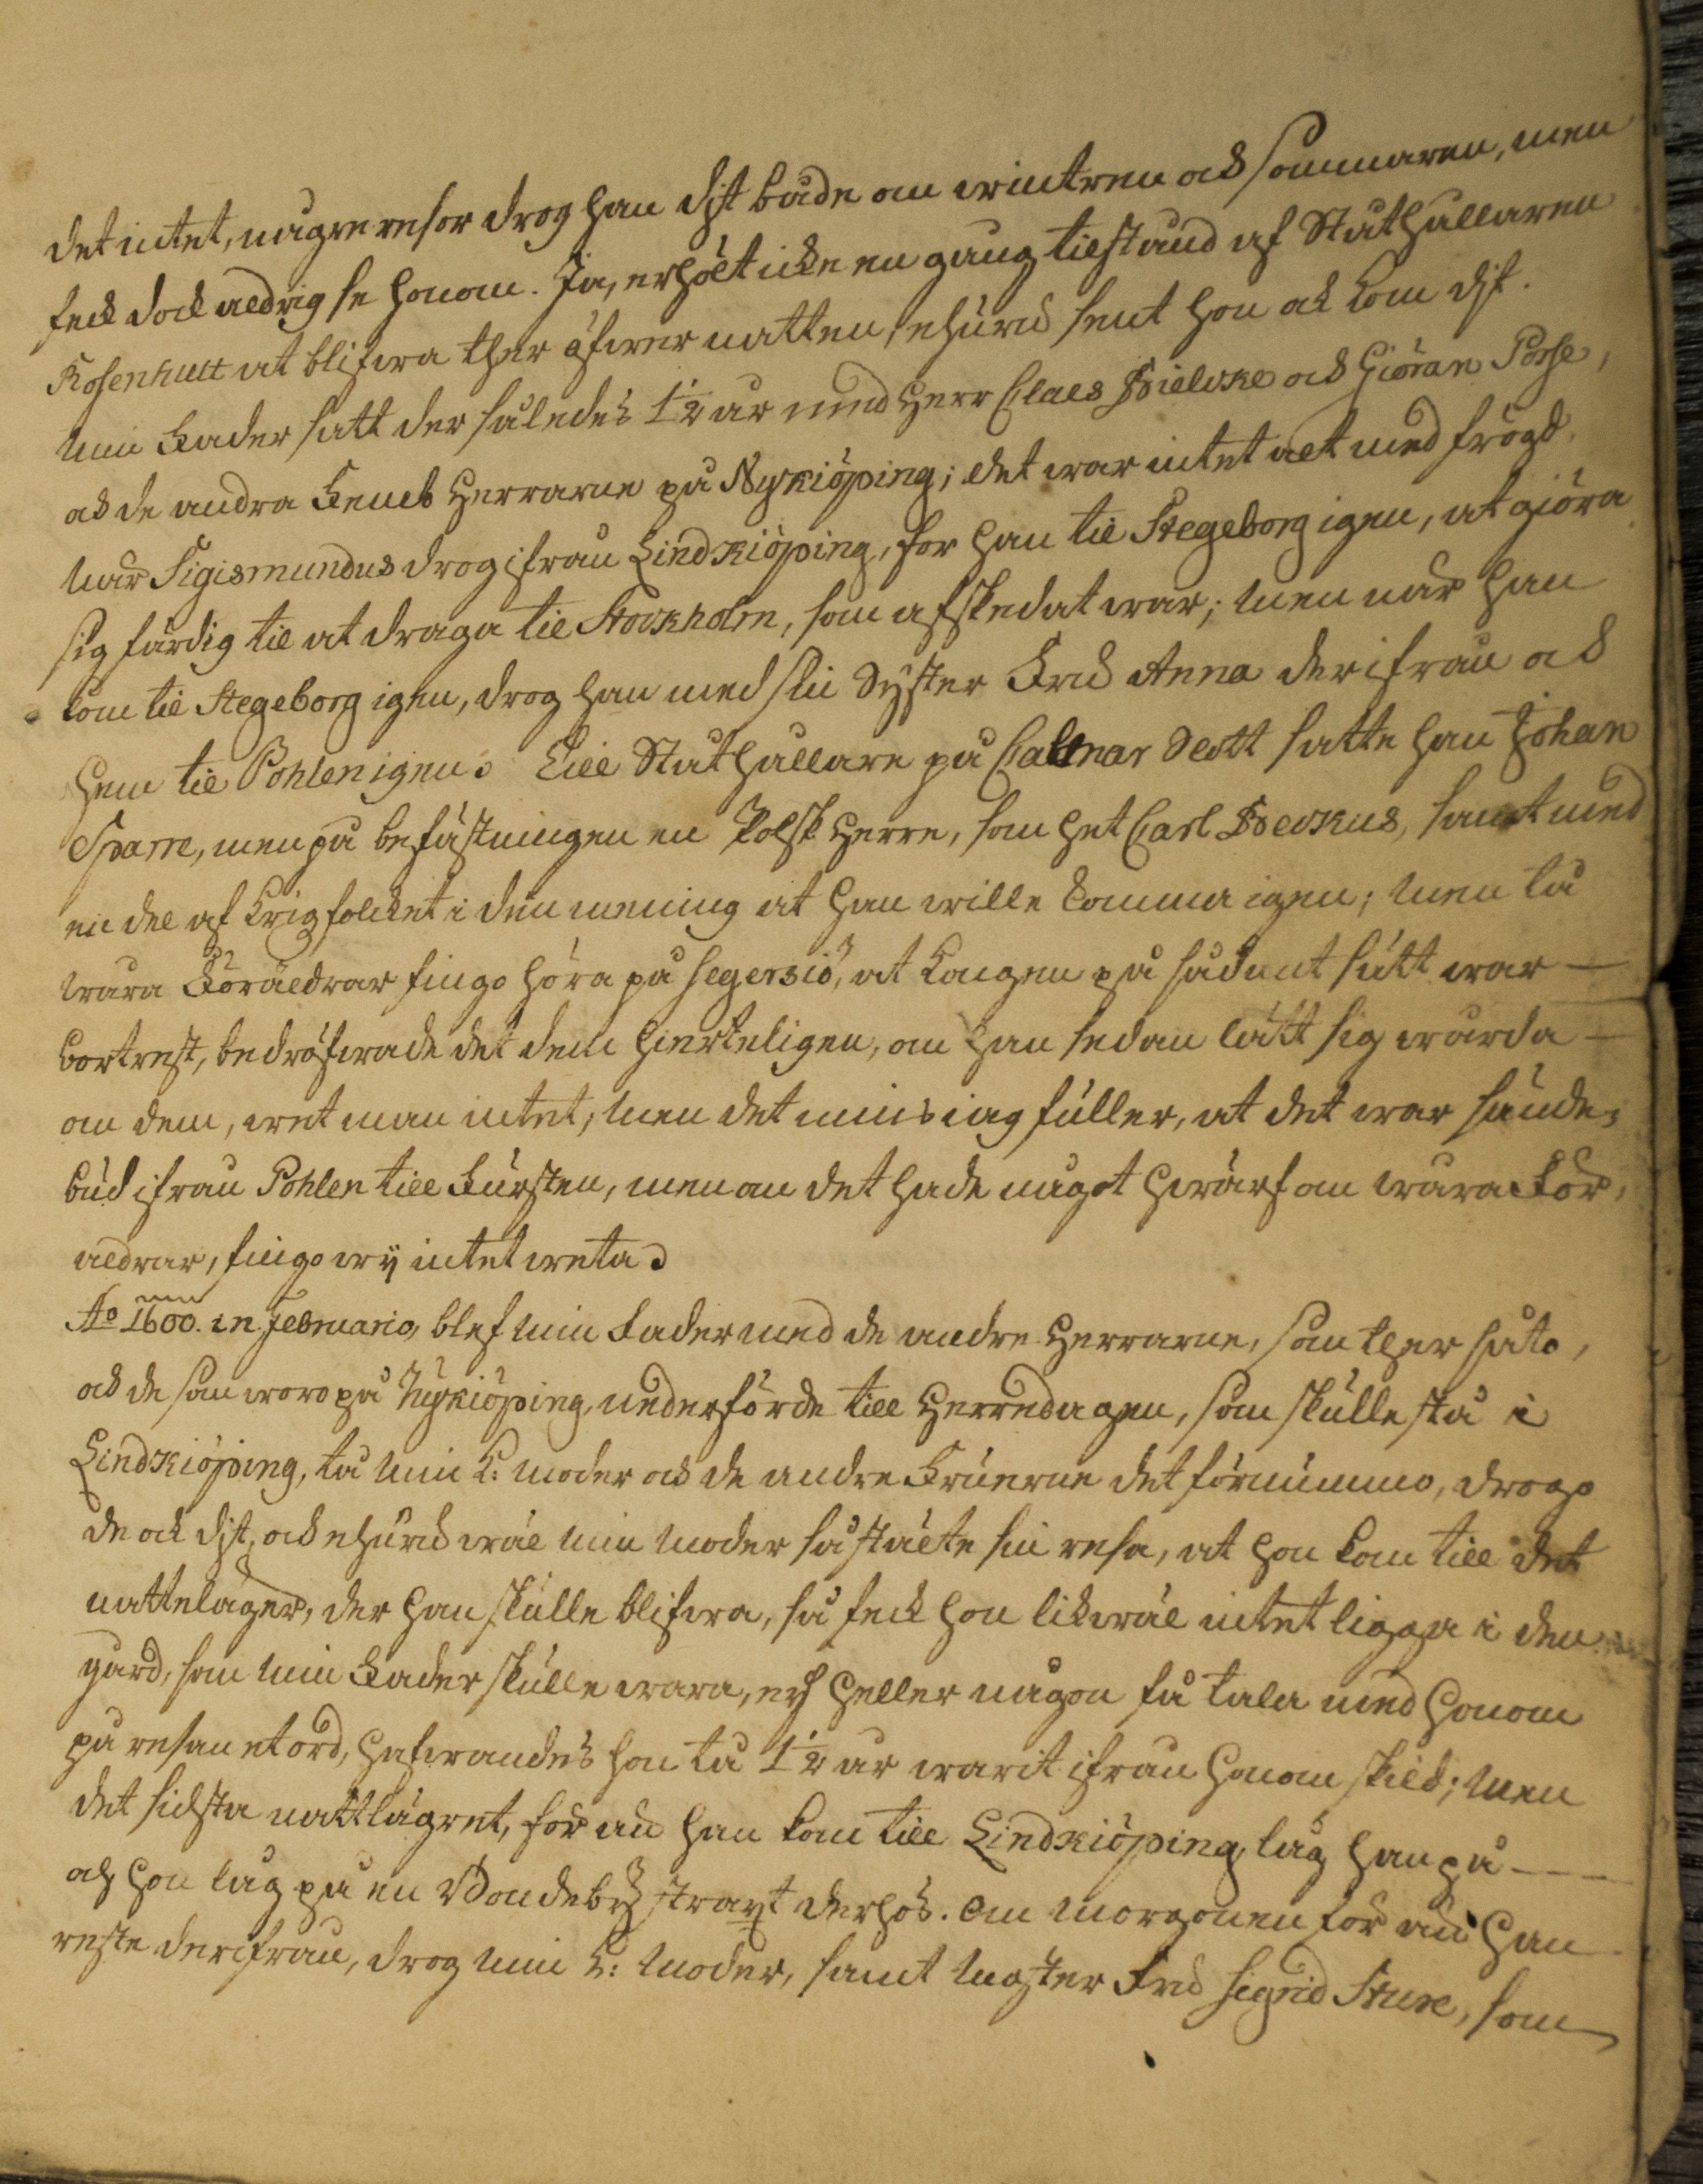 det intet, någre resor drog han dijt både om wintren och sommaren, men
feck dock aldrig se honom. Ja, erhölt icke en gång tilstånd af Ståthållaren
Rosenkutt at blifwa ther öfwer natten, ehuru sent hon ock kom dijt.
Min Fader satt der således 1½ år med Herr Claes Bielcke och Giöran Posse,
och de andra Femb Herrarne på Nykiöping; det war intet alt med frögd.
När Sigismundus drog ifrån Lindkiöping, for han til Stegeborg igen, at giöra
sig färdig til at draga til Stockholm, som afskedat war; Men när han
kom til Stegeborg igen, drog han med sin Syster Frü Anna derifrån och
hem til Pohlen igen. Till Ståthållare på Callmar Slott satte han Johan
Sparre, men på befästningen en Polsk Herre, som het Carl Beckus, samt med
en del af Krigfolcket i den mening at han wille komma igen; Men tå
wåra Föräldrar fingo höra på Segersiö, at Kongen på sådant sätt war —
bortrest, bedröfwade det dem hierteligen, om han sedan lätt sig wårda —
om dem, wet man intet; Men det mins iag fuller, at det war sände-
bud ifrån Pohlen till Fursten, men om det hade något hwärf om wåra För-
äldrar, fingo wÿ intet weta.
Ao 1600. in Februario, blef min Fader med de andre Herrarne, som ther såto,
och de som woro på Nykiöping, nederförde till Herredagen, som skulle stå i
Lindkiöping, tå min K: Moder och de andre Fruerne det förnummo, drogo
de ock dijt, och ehuru wäl min Moder så stälte sin resa, at hon kom till det
natteläger, der han skulle blifwa, så feck hon likwäl intet ligga i den
gård, som min Fader skulle wara, eij heller någon få tala med honom
på resan et ord, hafwandes hon tå 1½ år warit ifrån honom skild; Men
det sidsta nattlägret, för än han kom till Lindkiöping, låg han på —
och hon låg på en Bondebÿ straxt derhos. Om Morgonen för än han
reste derifrån, drog min K: Moder, samt Moster Frü Sigrid Sture, som